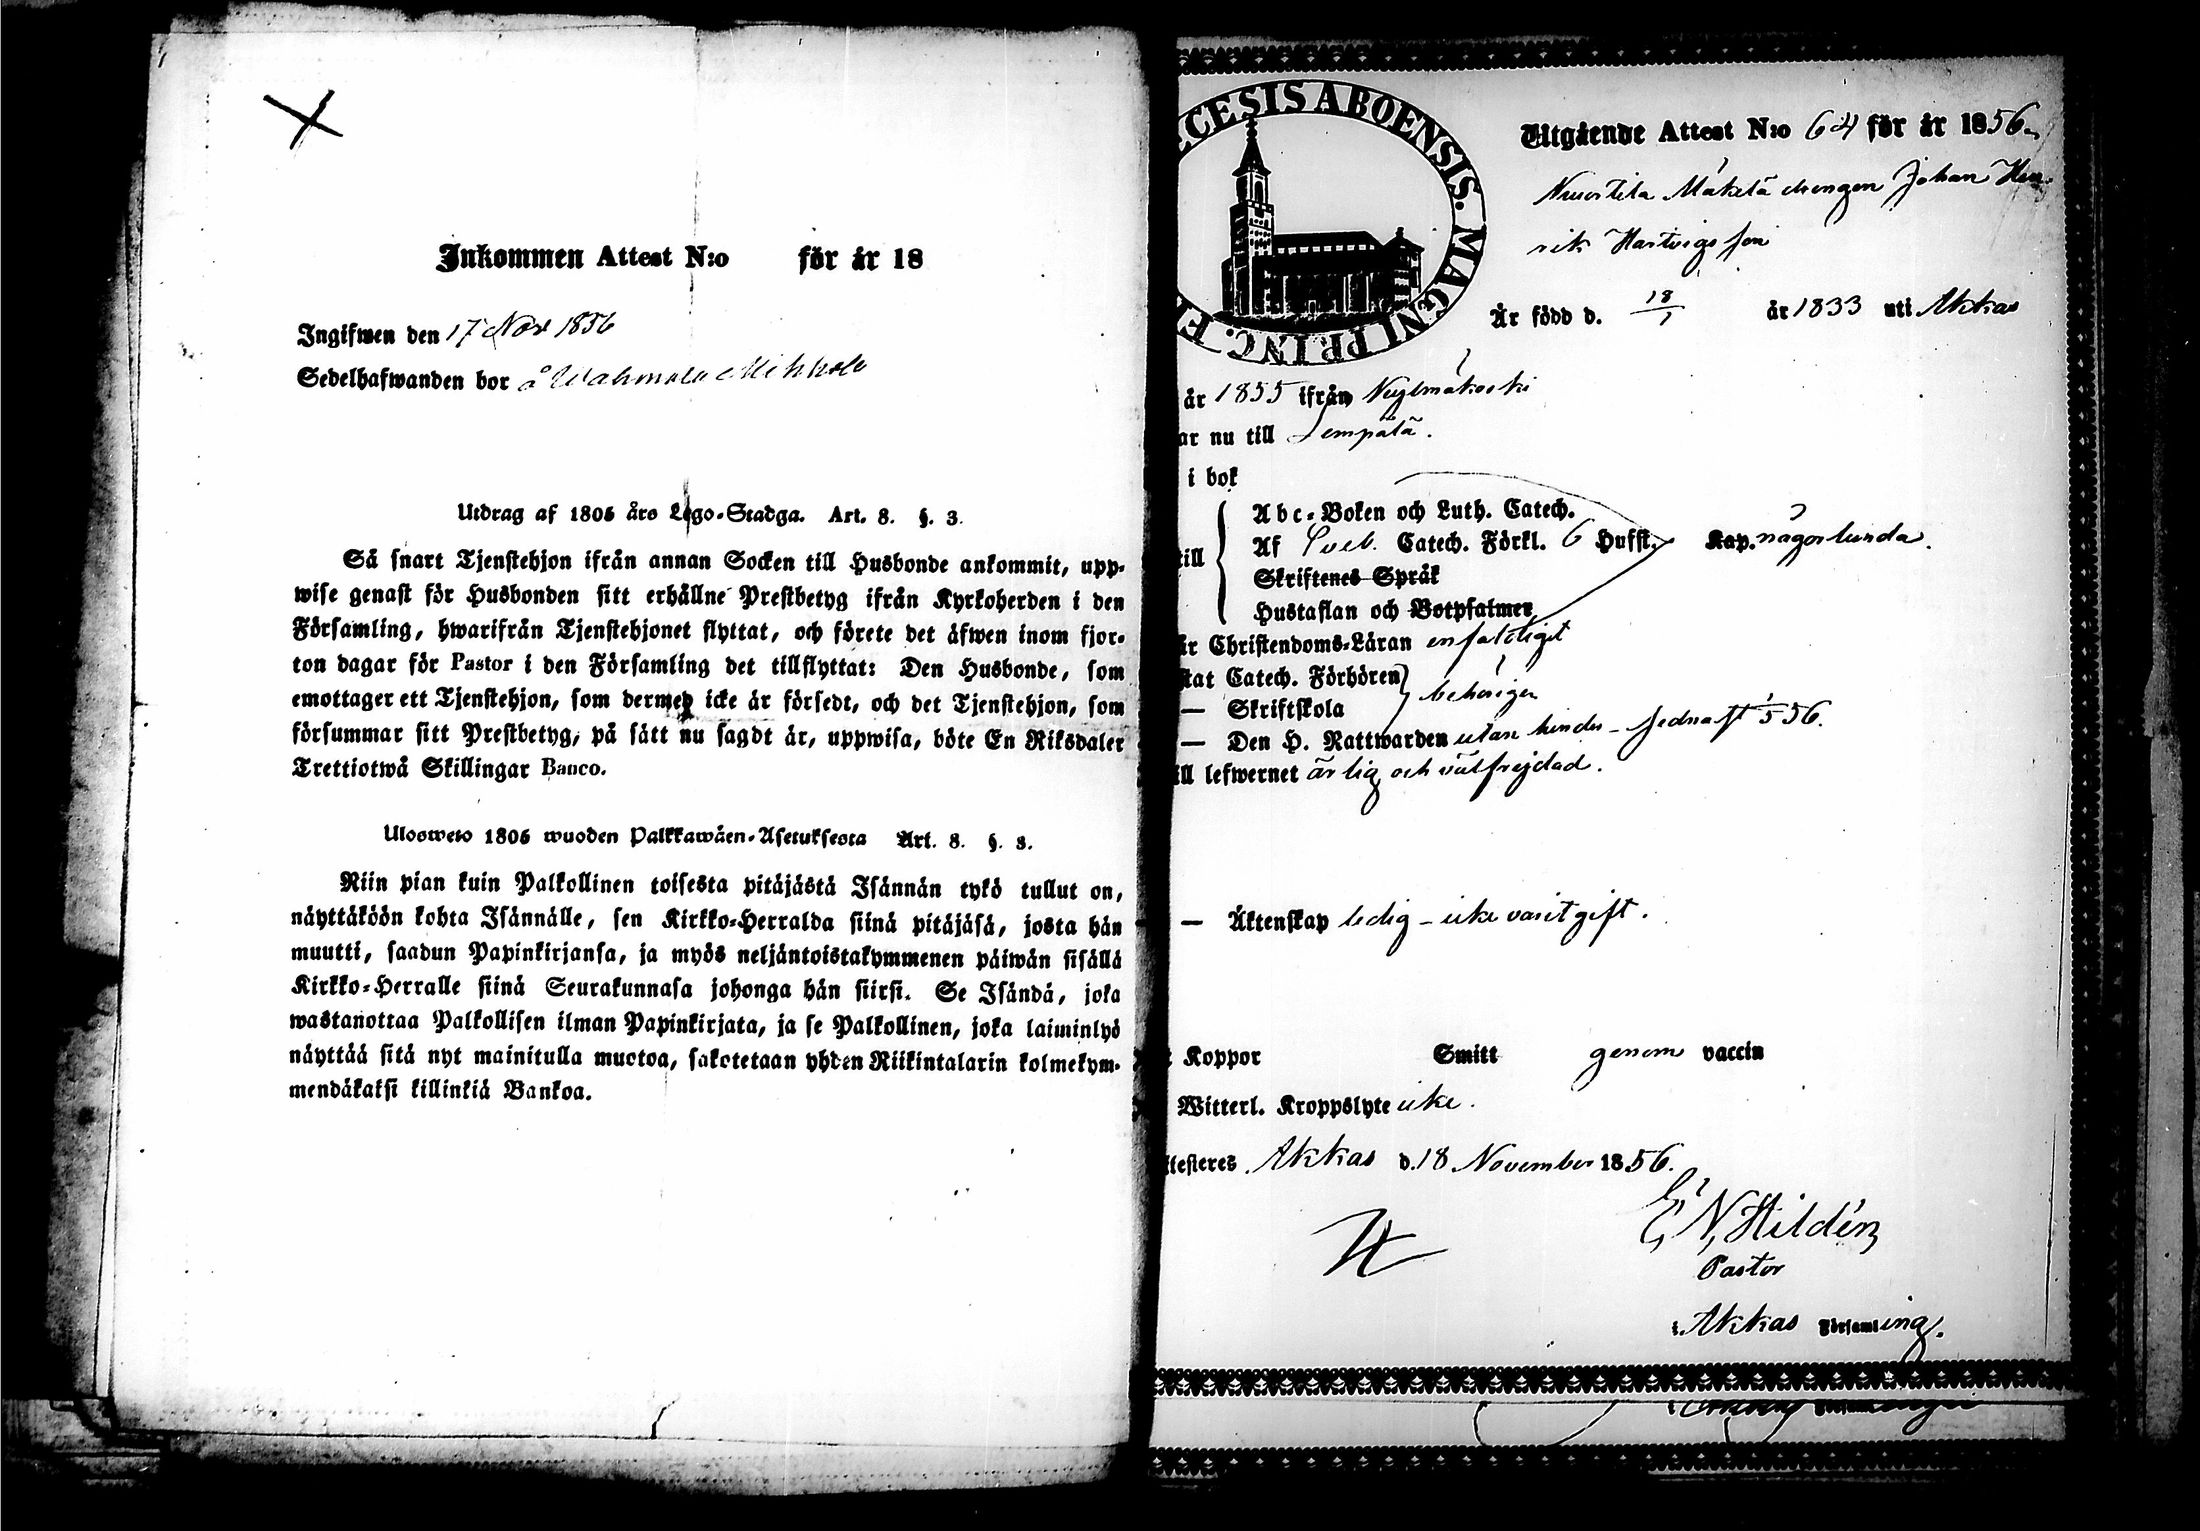 Inkommen Attest N:o för år 18
Ingifwen den 17 Nov 1856
Sedelhafwanden bor å Mikkola
Utdrag af 1805 års Lego-Stadga. Art. 8. §. 3.
Så snart Tjenstehjon ifrån annan Socken till Husbonde ankommit, upp-
wise genast för Husbonden sitt erhållne Prestbetyg ifrån Kyrkoherden i den
Församling, hwarifrån Tjenstehjonet flyttat, och förete det äfwen inom fjor-
ton dagar för Pastor i den Församling det tillflyttat: Den Husbonde, som
emottager ett Tjenstehjon, som dermed icke är försedt, och det Tjenstehjon, som
försummar sitt Prestbetyg, på sätt nu sagdt är, uppwisa, böte En Riksdaler
Trettiotwå Skillingar Banco.
Ulosweto 1805 wuoden Palkkawäen-Asetuksesta Art. 8. §. 3.
Niin pian kuin Palkollinen toisesta pitäjästä Isännän tykö tullut on,
näyttäköön kohta Isännälle, sen Kirkko-Herralda siinä pitäjäsä, josta hän
muutti, saadun Papinkirjansa, ja myös neljäntoistakymmenen päiwän sisällä
Kirkko-Herralle siinä Seurakunnasa johonga hän siirsi. Se Isändä, joka
wastanottaa Palkollisen ilman Papinkirjata, ja se Palkollinen, joka laiminlyö
näyttää sitä nyt mainitulla muotoa, sakotetaan yhden Riikintalarin kolmekym-
mendäkaksi killinkiä Bankoa.
CESIS ABOENSIS. MAGNI PRINC. F
Utgående Attest N:o 64 för år 1856
Mäkelä drengen Johan Hen-
rik Hartvigsson
Är född d. 18/1 år 1833 uti Akkas
år 1855 ifrån Kylmäkoski
ar nu till Lempälä.
i bok
till
Abc-Boken och Luth. Catech.
Af Sveb. Catech. Förkl. 6 Hufst. Kap. någorlunda.
Skriftenes Språk
Hustaflan och Botpsalmer
är Christendoms-Läran enfaldiget
stat Catech. Förhören
— Skriftskola behörigen
— Den H. Nattwarden utan hinder - sednast 5 56.
ill lefwernet ärlig och välfrejdad.
— Äktenskap ledig - icke varit gift.
t Koppor Smitt genom vaccin
Witterl. Kroppslyte icke.
ttesteres Akkas d. 18 November 1856.
E. N. Hildén
Pastor
i Akkas Församling.